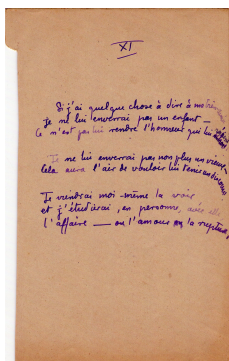 XI
Si j'ai quelque chose à dire à
Je ne lui enverrai pas un enfant —
Ce n'est pas lui rendre l'honneur qui lui
Je ne lui enverrai pas non plus un vieux —
Cela aura l'air de vouloir lui tenir
Je viendrai moi-même la voir
et j'étudierai, en personne, avec elle
l'affaire — ou l'amour ou la rupture